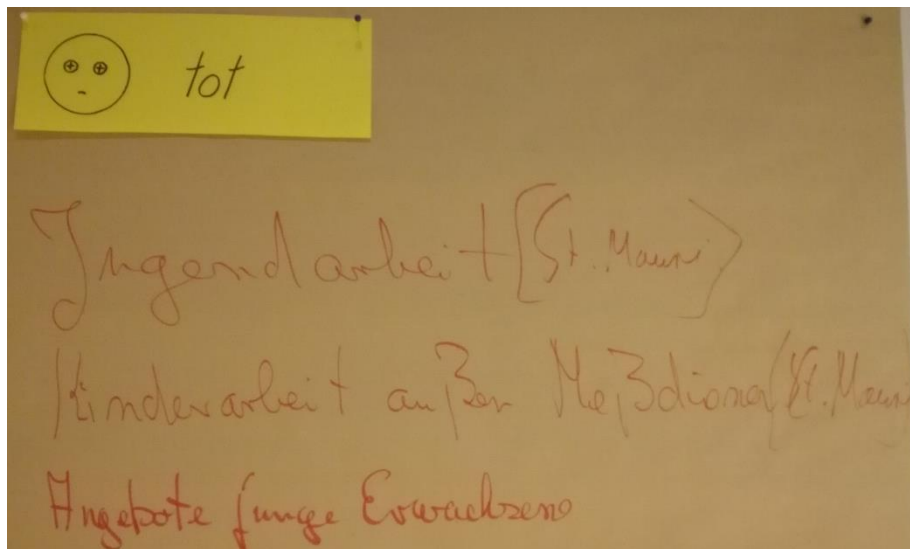 tot
Jugendarbeit (St. Mauri)
Kinderarbeit außer Meßdiener (St. Mauri)
Angebote junge Erwachsene